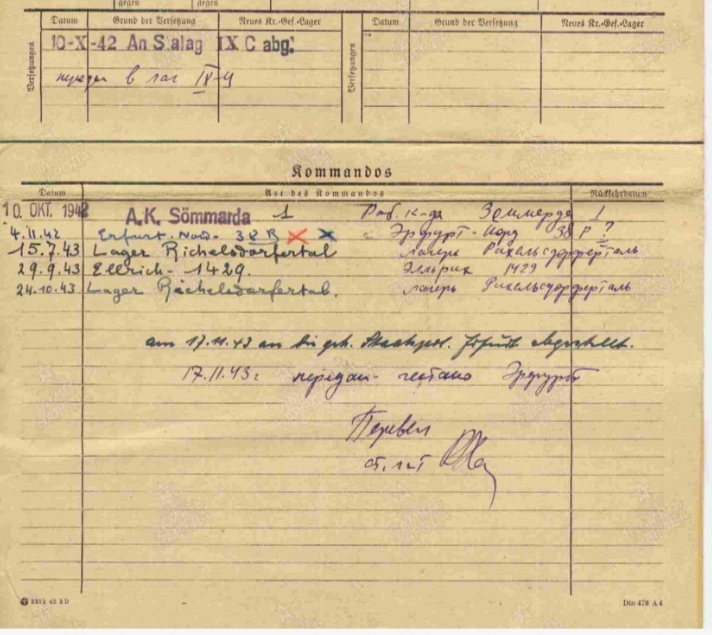 gegen gegen
Datum Grund der Versetzung Neues Kr.-Gef.-Lager Datum Grund der Versetzung Neues Kr.-Gef.-Lager
Versetzungen Versetzungen
10-X-42 An Stalag IX C abg.
передан в лаг IX-Ц
Kommandos
Datum Art des Kommandos Rückkehrdatum
10. OKT. 1942 A.K. Sömmarda 1 Раб. к-да Зоммерда 1
4.11.42 Erfurt-Nord- 382 Эрфурт-норд ?
15.7.43 Lager Richelsdorfertal лагерь Рихельсдорферталь
29.9.43 Ellrich - 1429. Эльрих 1429
24.10.43 Lager Richelsdorfertal. лагерь Рихельсдорферталь
am 17.11.43 an die geh. Staatspol. Erfurt abgestellt.
17.11.43г передан гестапо Эрфурт
Перевел
ст. л-т
Din 476 A 4